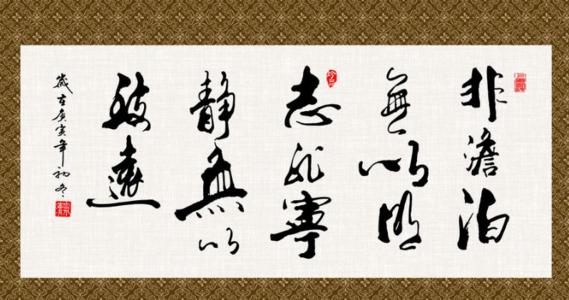 非澹泊
無以明
志非寧
靜無以
致遠
歲在庚寅年初冬